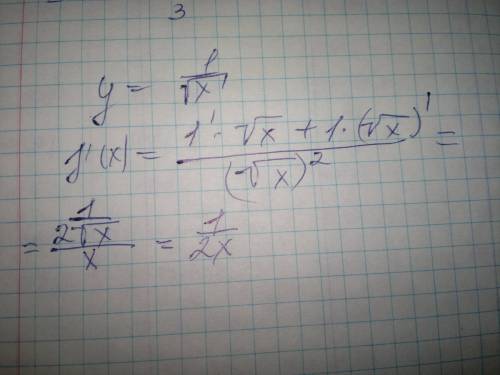 3
y = 1/√x
f'(x) = (1' · √x + 1 · (√x)')/(√x)² =
= (1/(2√x))/x = 1/(2x)